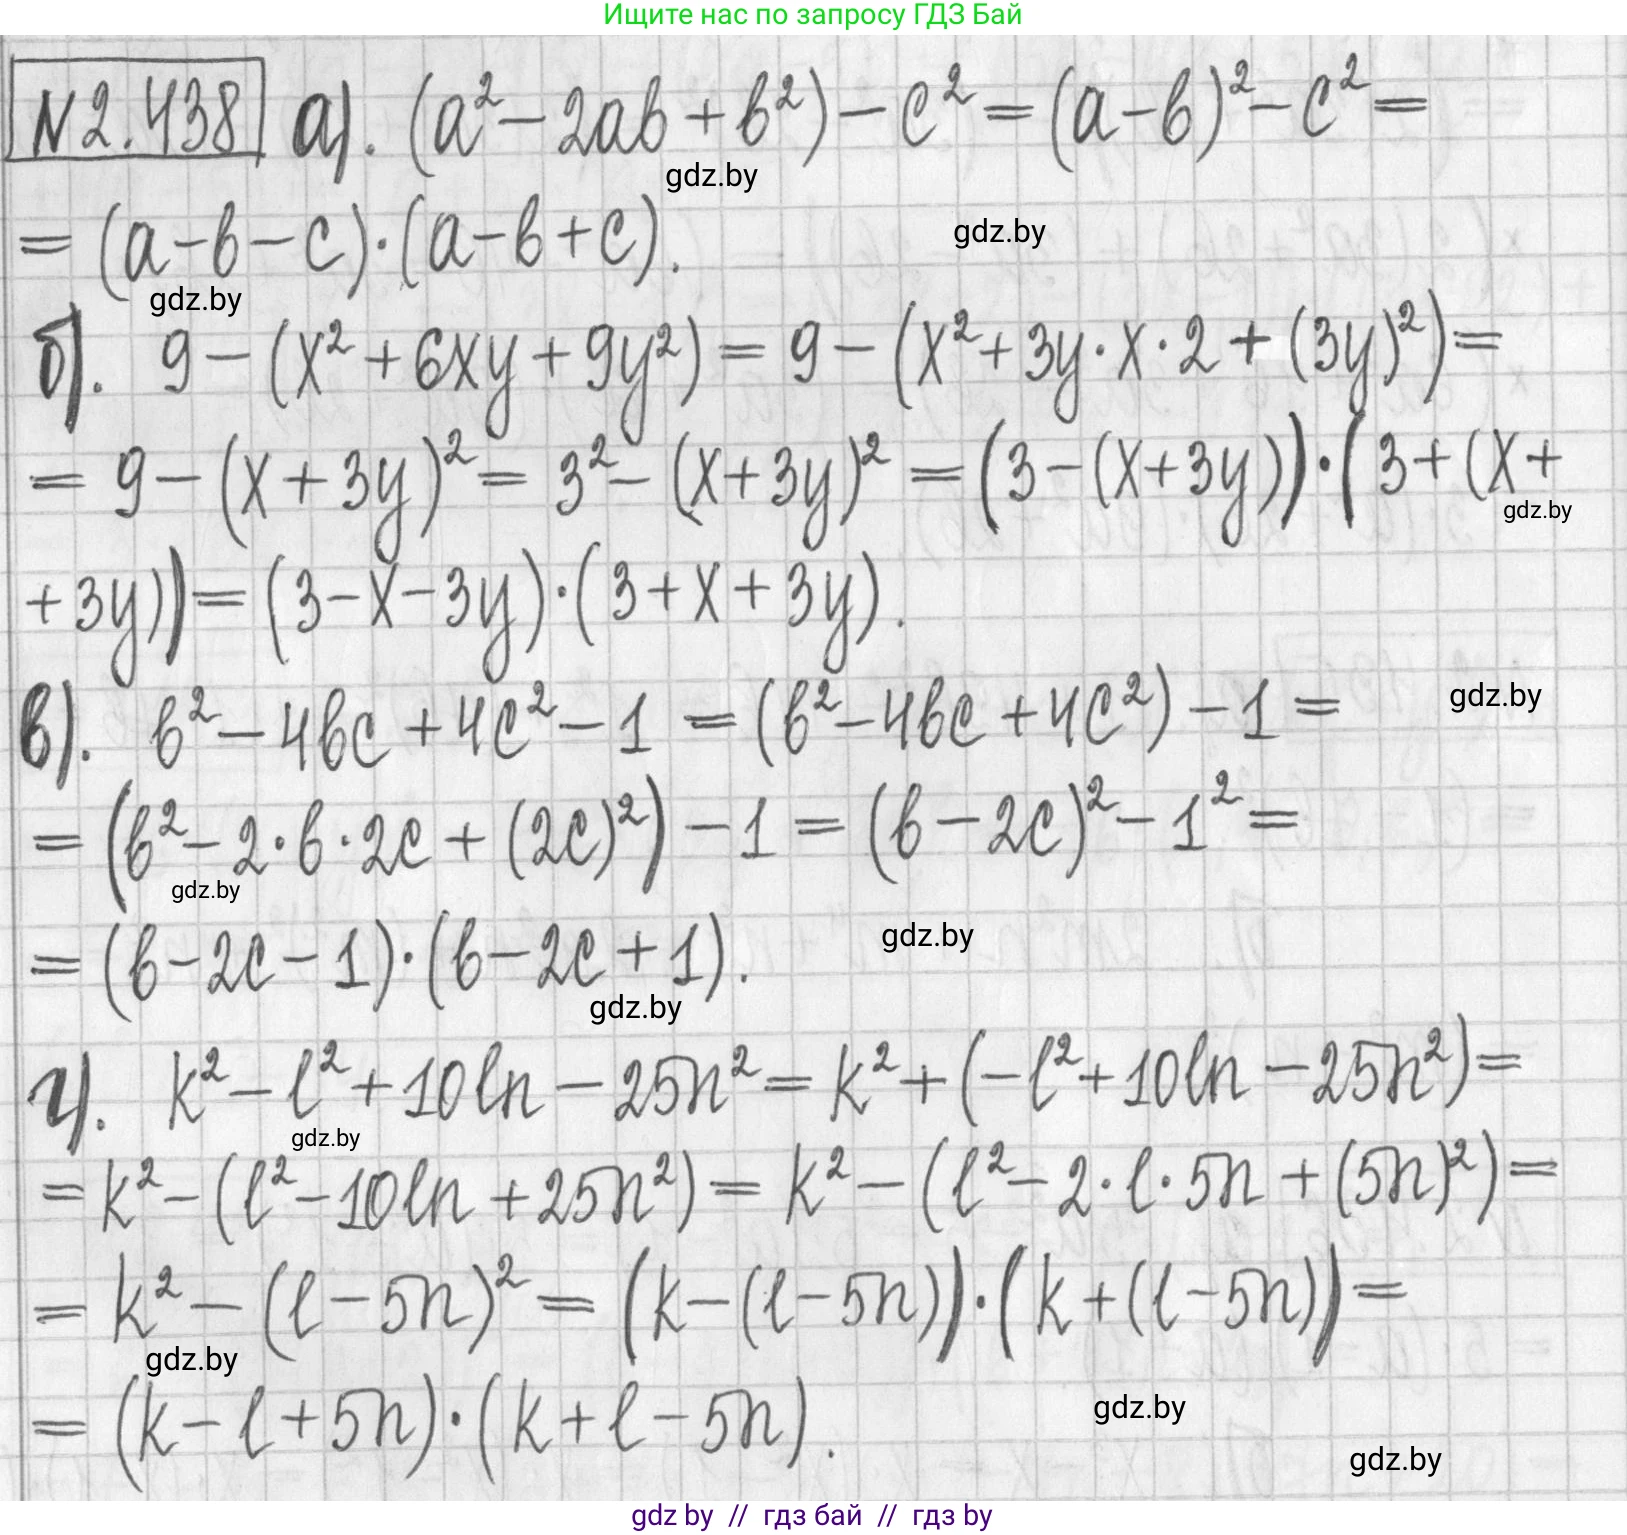 Ищите нас по запросу ГДЗ Бай
N2.438 а). (a² - 2ab + b²) - c² = (a - b)² - c² =
gdz.by
= (a - b - c)·(a - b + c).
gdz.by
gdz.by
б). 9 - (x² + 6xy + 9y²) = 9 - (x² + 3y·x·2 + (3y)²) =
= 9 - (x + 3y)² = 3² - (x + 3y)² = (3 - (x + 3y))·(3 + (x +
gdz.by
+ 3y)) = (3 - x - 3y)·(3 + x + 3y).
в). b² - 4bc + 4c² - 1 = (b² - 4bc + 4c²) - 1 =
gdz.by
= (b² - 2·b·2c + (2c)²) - 1 = (b - 2c)² - 1² =
gdz.by
= (b - 2c - 1)·(b - 2c + 1).
gdz.by
gdz.by
г). k² - l² + 10ln - 25n² = k² + (-l² + 10ln - 25n²) =
gdz.by
= k² - (l² - 10ln + 25n²) = k² - (l² - 2·l·5n + (5n)²) =
= k² - (l - 5n)² = (k - (l - 5n))·(k + (l - 5n)) =
gdz.by
= (k - l + 5n)·(k + l - 5n).
gdz.by
gdz.by
gdz by // гдз бай // гдз by